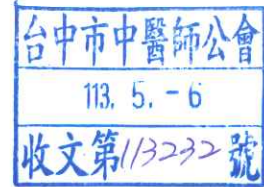 台中市中醫師公會
113. 5. - 6
收文第113232號